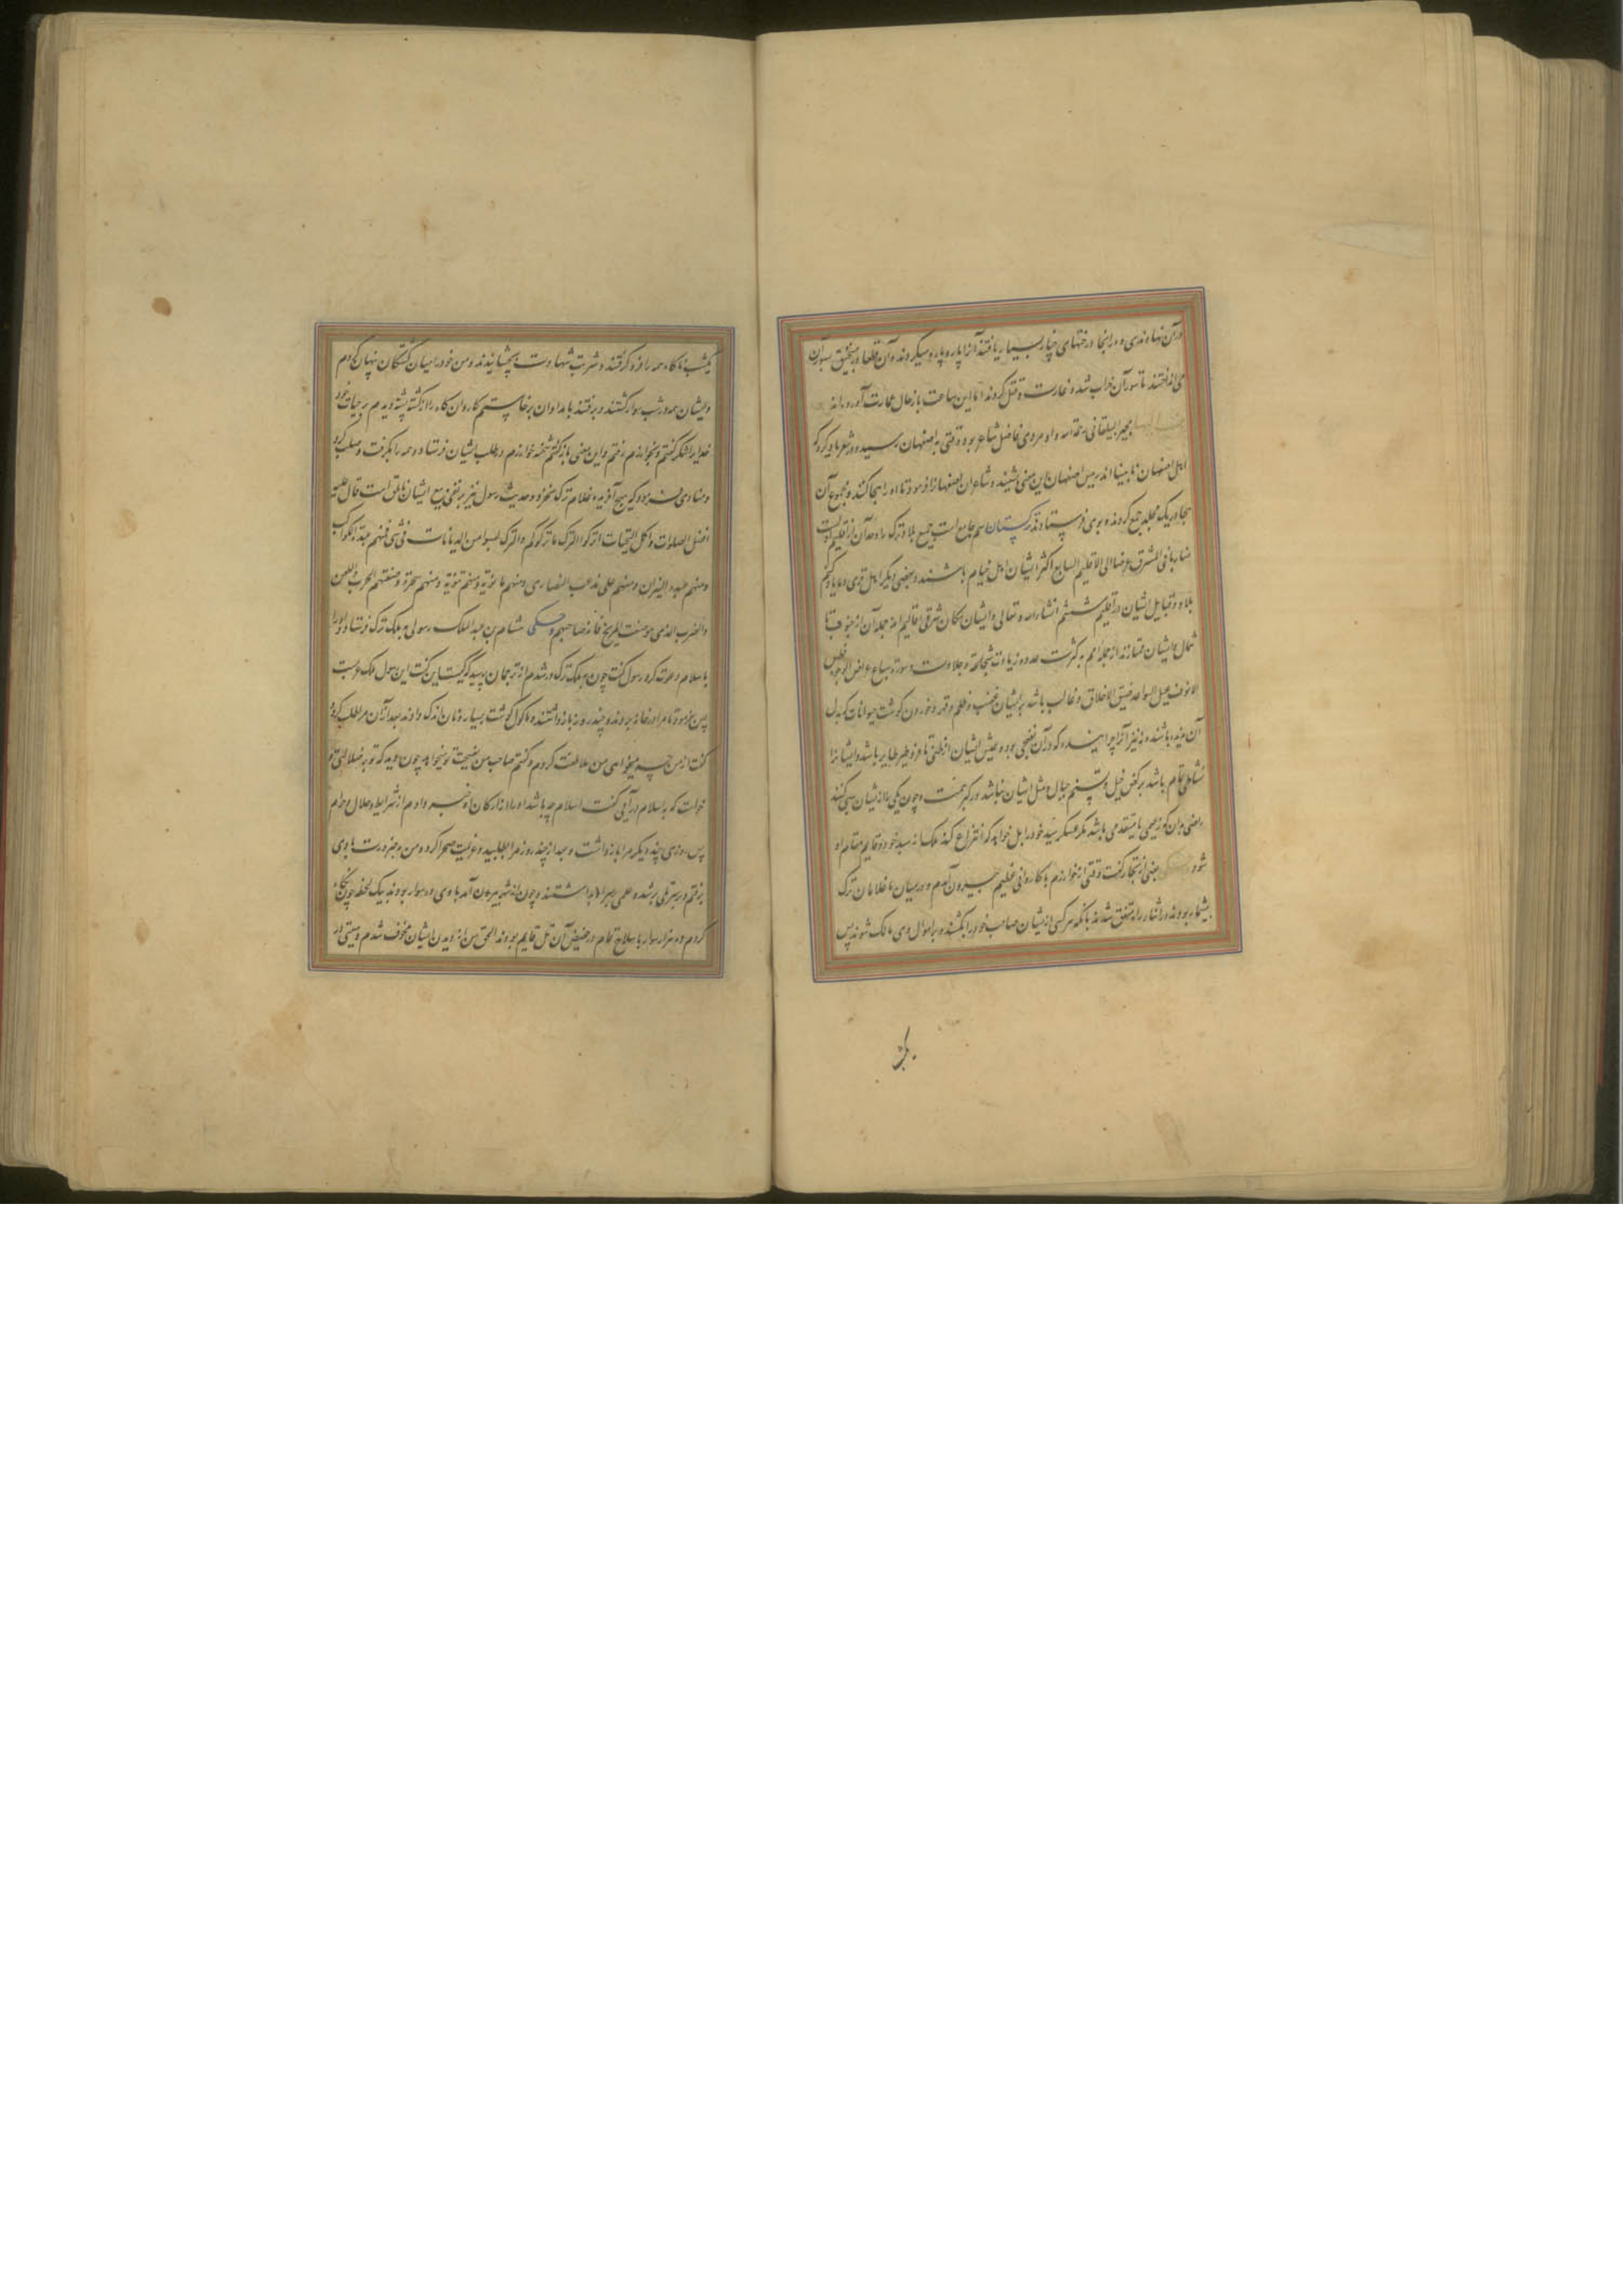 در آن نهادندی و در انجا درختهای چنار بسیار یافتند آنرا پاره پاره میکردند و آن قطعها در منجنیق بسور آن
می انداختند تا سور آن خراب شد و غارت و قتل کردند اما این ساعت باز حال عمارت آورده اند
مجیر بیلقانی رحمة الله و او مردی فاضل شاعر بوده وقتی به اصفهان رسید و در شعر یاد کرد که
اهل اصفهان نابینا اند رییس اصفهان این معنی بشنید و شاعران اصفهانرا فرمود تا او را هجا کنند و مجموع آن
هجا در یک مجلد جمع کردند و بوی فرستادند ترکستان اسم جامع است جمیع بلاد ترک را و حد آن از اقلیم اول است
ضاربا فی المشرق عرضا الی الاقلیم السابع اکثر ایشان اهل خیام باشند و بعضی دیگر اهل قری و ما یاد کنیم
بلاد و قبایل ایشان در اقلیم ششم انشاء الله تعالی و ایشان سکان شرقی اقالیم اند جمله آن از جنوب تا
شمال و ایشان ممتازند از جمله امم به کثرت عدد و زیادت شجاعة و جلادت و صورة سباع عراض الوجوه فطس
الانوف عبل السواعد ضیق الاخلاق و غالب باشد بر ایشان غضب و ظلم و قهر و خوردن گوشت حیوانات که بدل
آن ندیده باشند و نیز آنرا چرا پزند که در آن نضجی بود و عیش ایشان از
نشاطی تمام باشد بر رکض خیل و تسنم جبال و مثل ایشان نباشد در کبر همت و چون یکی را از ایشان سبی کنند
راضی بدان که زعیمی یا متقدمی باشد مگر عسکر سید خود را بل خواهد که انتزاع کند ملک را از سید خود و قایم مقام او
شود بعضی از تجار گفت وقتی از خوارزم با کاروانی عظیم بیرون آمدم و در میان ما غلامان ترک
بیشمار بودند در اثنای راه متفق شدند بانکه هر کسی از ایشان صاحب خود را بکشند و بر اموال وی مالک شوند پس
یکشب ناگاه همه را فرو گرفتند و شربت شهادت بچشانیدند و من خود را میان کشتگان پنهان کردم
و ایشان همه در شب سوار گشتند و برفتند بامدادان برخاستم کاروان گاه را از کشته پشته دیدم بر حیات خود
خدایرا شکر گفتم و بخوارزم رفتم و این معنی باز گفتم شحنه خوارزم در طلب ایشان فرستاد و همه را بگرفت و صلب کرد
و منادی فرمود که هیچ آفریده غلام ترک نخرد و حدیث رسول نیز بر نفی بیع ایشان ناطق است قال علیه
افضل الصلوات و اکمل التحیات اترکوا الترک ما ترکوکم و الترک لیسوا من الدیانات فی شی فمنهم عبدة الکواکب
و منهم عبدة النیران و منهم علی مذهب النصاری و منهم مانویة و منهم ثنویة و منهم سحرة و صنعتهم الحرب و الطعن
و الضرب الذی هو صنعت المریخ فانه صاحبهم و حکی هشام بن عبد الملک رسولی به ملک ترک فرستاد و او را
باسلام دعوت کرد رسول گفت چون به ملک ترک در شدم از ترجمان پرسید که کیست این گفت این رسول ملک عربست
پس فرمود تا مرا در خانه بردند و چند روز باز داشتند و ماکول گوشت بسیار و نان اندک دادند بعد از آن مرا طلب کرد و
گفت از من چه میخواهی من ملاطفت کردم و گفتم صاحب من نصیحت تو میخواهد چون دید که تو بر ضلالتی تو
خواست که باسلام در آیی گفت اسلام چه باشد او را از ارکان او خبر دادم از شرایط و حلال و حرام
پس روزی چند دیگر مرا باز داشت و بعد از چند روز مرا طلبید و عزیمت صحرا کرد و من به ضرورت با وی
برفتم و بر سر تلی بر شد و علمی همراه او داشتند و چون از شهر بیرون آمد با وی ده سوار بودند بیک لحظه چون نگاه
کردم ده هزار سوار با سلاح تمام در حضیض آن تل قایم بودند الحق من از دیدن ایشان مخوف شدم و هیبتی در